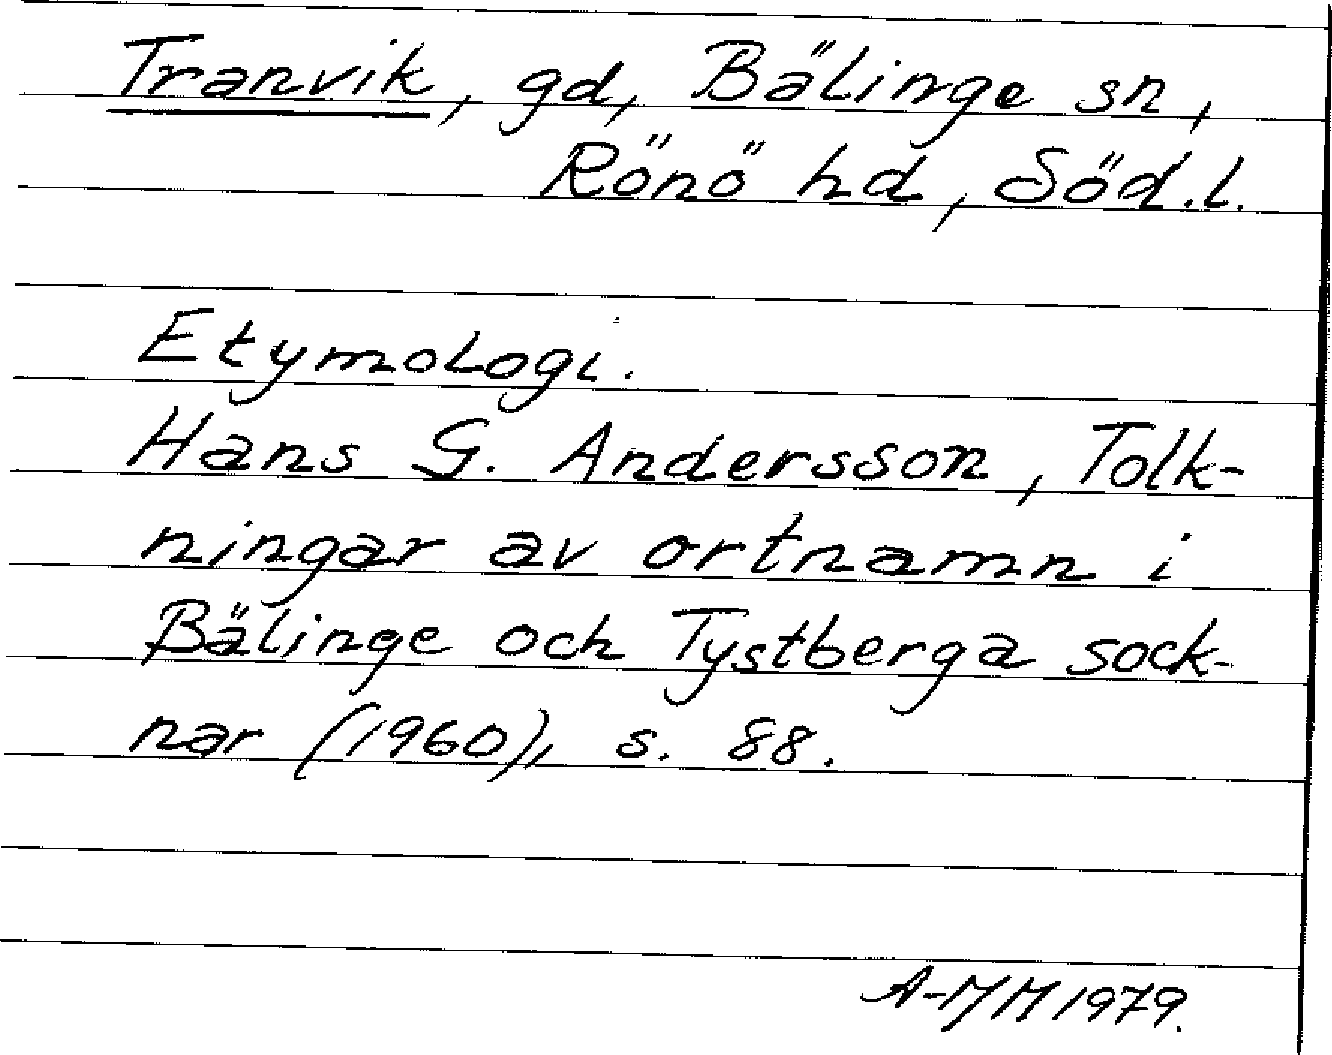 Tranvik, gd, Bälinge sn,
Rönö hd, Söd.l.
Etymologi.
Hans G. Andersson, Tolk-
ningar av ortnamn i
Bälinge och Tystberga sock-
nar (1960), s. 88.
A-MM 1979.